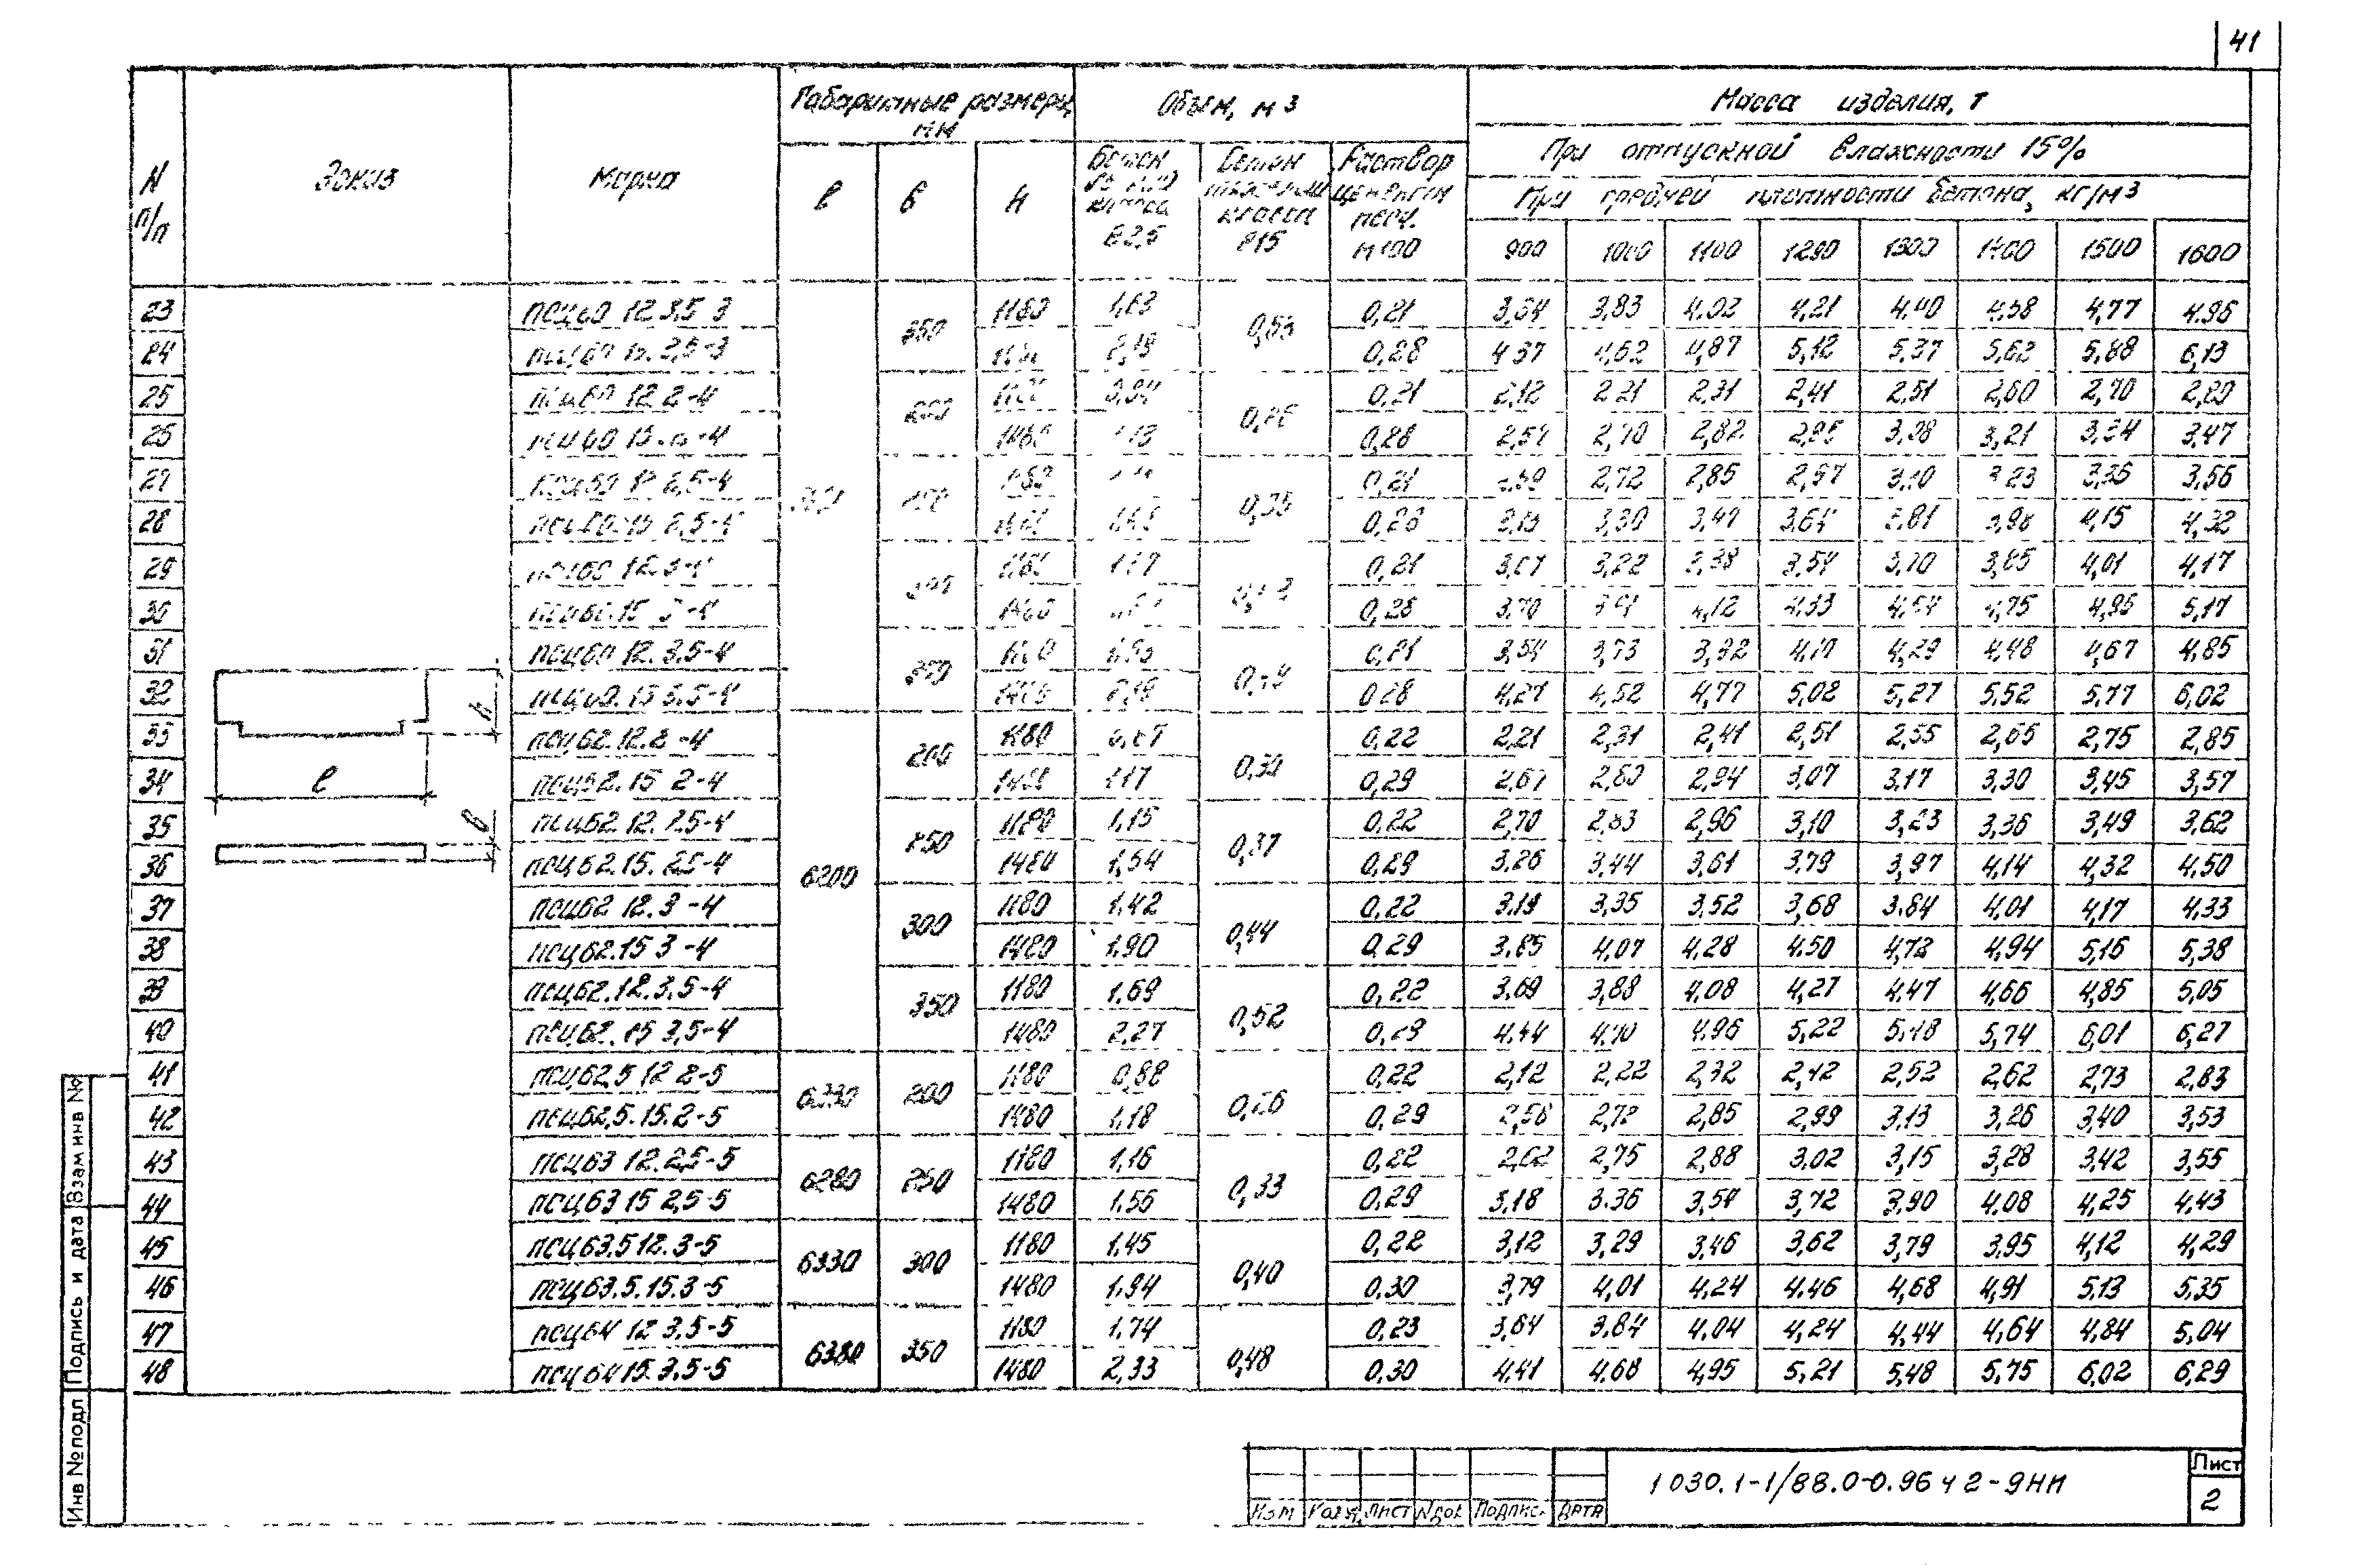 41
N п/п Эскиз Марка Габаритные размеры, мм Объём, м3 Масса изделия, т
При отпускной влажности 15%
При средней плотности бетона, кг/м3
ℓ в н Бетон класса В3,5 Бетон класса В15 Раствор цементн песч. М100
900 1000 1100 1200 1300 1400 1500 1600
23 ПСЦ60 12 3,5 3 350 1180 1,63 0,21 3,64 3,83 4.02 4,21 4.40 4.58 4,77 4.96
24 ПСЦ60 15. 3,5-3 2,19 0,28 4 37 4,62 4,87 5,12 5,37 5,62 5,88 6,13
25 ПСЦ60 12 2-4 200 0,21 2,12 2 21 2,31 2,41 2,51 2,60 2,70 2,80
26 ПСЦ60 15. -4 1480 0,28 2,57 2,70 2,82 2,95 3,08 3,21 3,34 3,47
27 ПСЦ60 12 2,5-4 0,21 2,72 2,85 2,97 3,10 3 23 3,36 3,56
28 ПСЦ60.15 2,5-4 0,28 3,13 3,30 3,47 3,64 3,81 3,98 4,15 4,32
29 ПСЦ60 12.3-4 0,21 3,07 3,22 3,38 3,54 3,70 3,85 4,01 4,17
30 ПСЦ60.15 3-4 1480 0,28 3,70 4,12 4,33 4,54 4,75 4,96 5,17
31 ПСЦ60 12. 3,5-4 350 0,21 3,54 3,73 3,92 4,10 4,29 4,48 4,67 4,85
32 ПСЦ60. 15 3,5-4 2,19 0,28 4,27 4,52 4,77 5,02 5,27 5,52 5,77 6,02
33 ПСЦ62.12.2 -4 200 1180 0,87 0,30 0,22 2,21 2,31 2,41 2,51 2,55 2,65 2,75 2,85
34 ПСЦ62.15 2-4 1480 1,17 0,29 2,67 2,80 2,94 3,07 3,17 3,30 3,45 3,57
h
ℓ
в
35 ПСЦ62 12. 2,5-4 6200 250 1180 1,15 0,37 0,22 2,70 2,83 2,96 3,10 3,23 3,36 3,49 3,62
36 ПСЦ62.15. 2,5-4 1480 1,54 0,29 3,26 3,44 3,61 3,79 3,97 4,14 4,32 4,50
37 ПСЦ62 12.3 -4 300 1180 1,42 0,44 0,22 3,19 3,35 3,52 3,68 3.84 4,01 4,17 4,33
38 ПСЦ62.15 3 -4 1480 1,90 0,29 3,85 4,07 4,28 4.50 4,72 4,94 5,16 5,38
39 ПСЦ62.12.3,5-4 350 1180 1.69 0,52 0,22 3,69 3,88 4.08 4,27 4,47 4,66 4,85 5,05
40 ПСЦ62. 15 3,5-4 1480 2,27 0,29 4,44 4,70 4,96 5,22 5,48 5,74 6,01 6,27
41 ПСЦ62,5 12 2-5 6230 200 1180 0,88 0,26 0,22 2,12 2,22 2,32 2,42 2,52 2,62 2,73 2,83
42 ПСЦ62,5.15.2-5 1480 1,18 0,29 2,58 2,72 2,85 2,99 3,13 3,26 3,40 3,53
43 ПСЦ63 12.2,5-5 6280 250 1180 1,16 0,33 0,22 2,62 2,75 2,88 3,02 3,15 3,28 3,42 3,55
44 ПСЦ63 15 2,5-5 1480 1,56 0,29 3,18 3.36 3,54 3,72 3,90 4,08 4,25 4,43
45 ПСЦ63.5 12. 3-5 6330 300 1180 1,45 0,40 0,22 3,12 3,29 3,46 3,62 3,79 3,95 4,12 4,29
46 ПСЦ63.5.15.3-5 1480 1,94 0,30 3,79 4,01 4,24 4.46 4,68 4,91 5,13 5,35
47 ПСЦ64 12 3,5-5 6380 350 1180 1,74 0,48 0,23 3,64 3,84 4,04 4,24 4,44 4,64 4,84 5,04
48 ПСЦ64 15.3,5-5 1480 2,33 0,30 4,41 4,68 4,95 5,21 5,48 5,75 6,02 6,29
Инв № подл Подпись и дата Взам инв №
Изм Кол.уч Лист №док Подпис. Дата
1 030.1-1/88.0-0.96 ч 2-9НИ
Лист
2